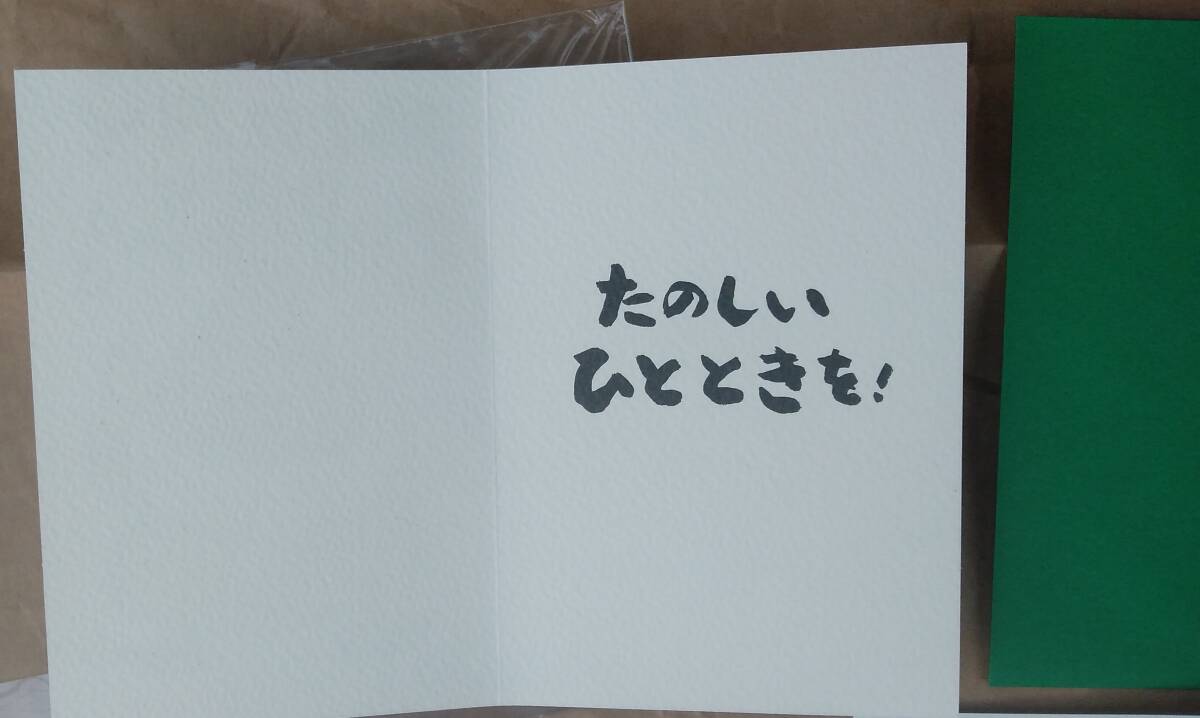 たのしい
ひとときを!